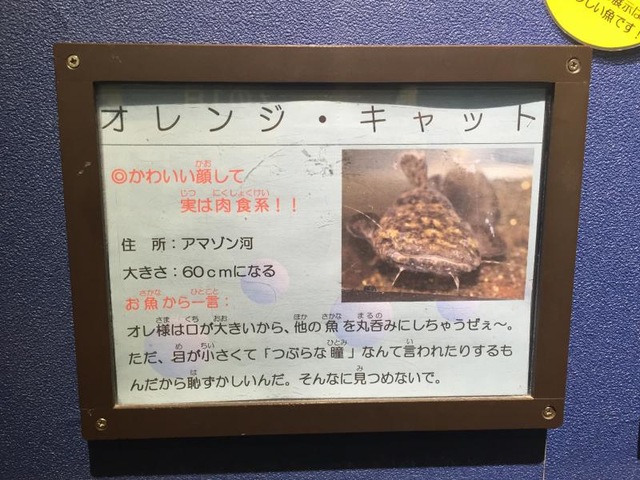 展示は
らしい魚です！
オレンジ・キャット
◎かわいい顔して
実は肉食系！！
住 所：アマゾン河
大きさ：60cmになる
お魚から一言：
オレ様は口が大きいから、他の魚を丸呑みにしちゃうぜぇ〜。
ただ、目が小さくて「つぶらな瞳」なんて言われたりするも
んだから恥ずかしいんだ。そんなに見つめないで。